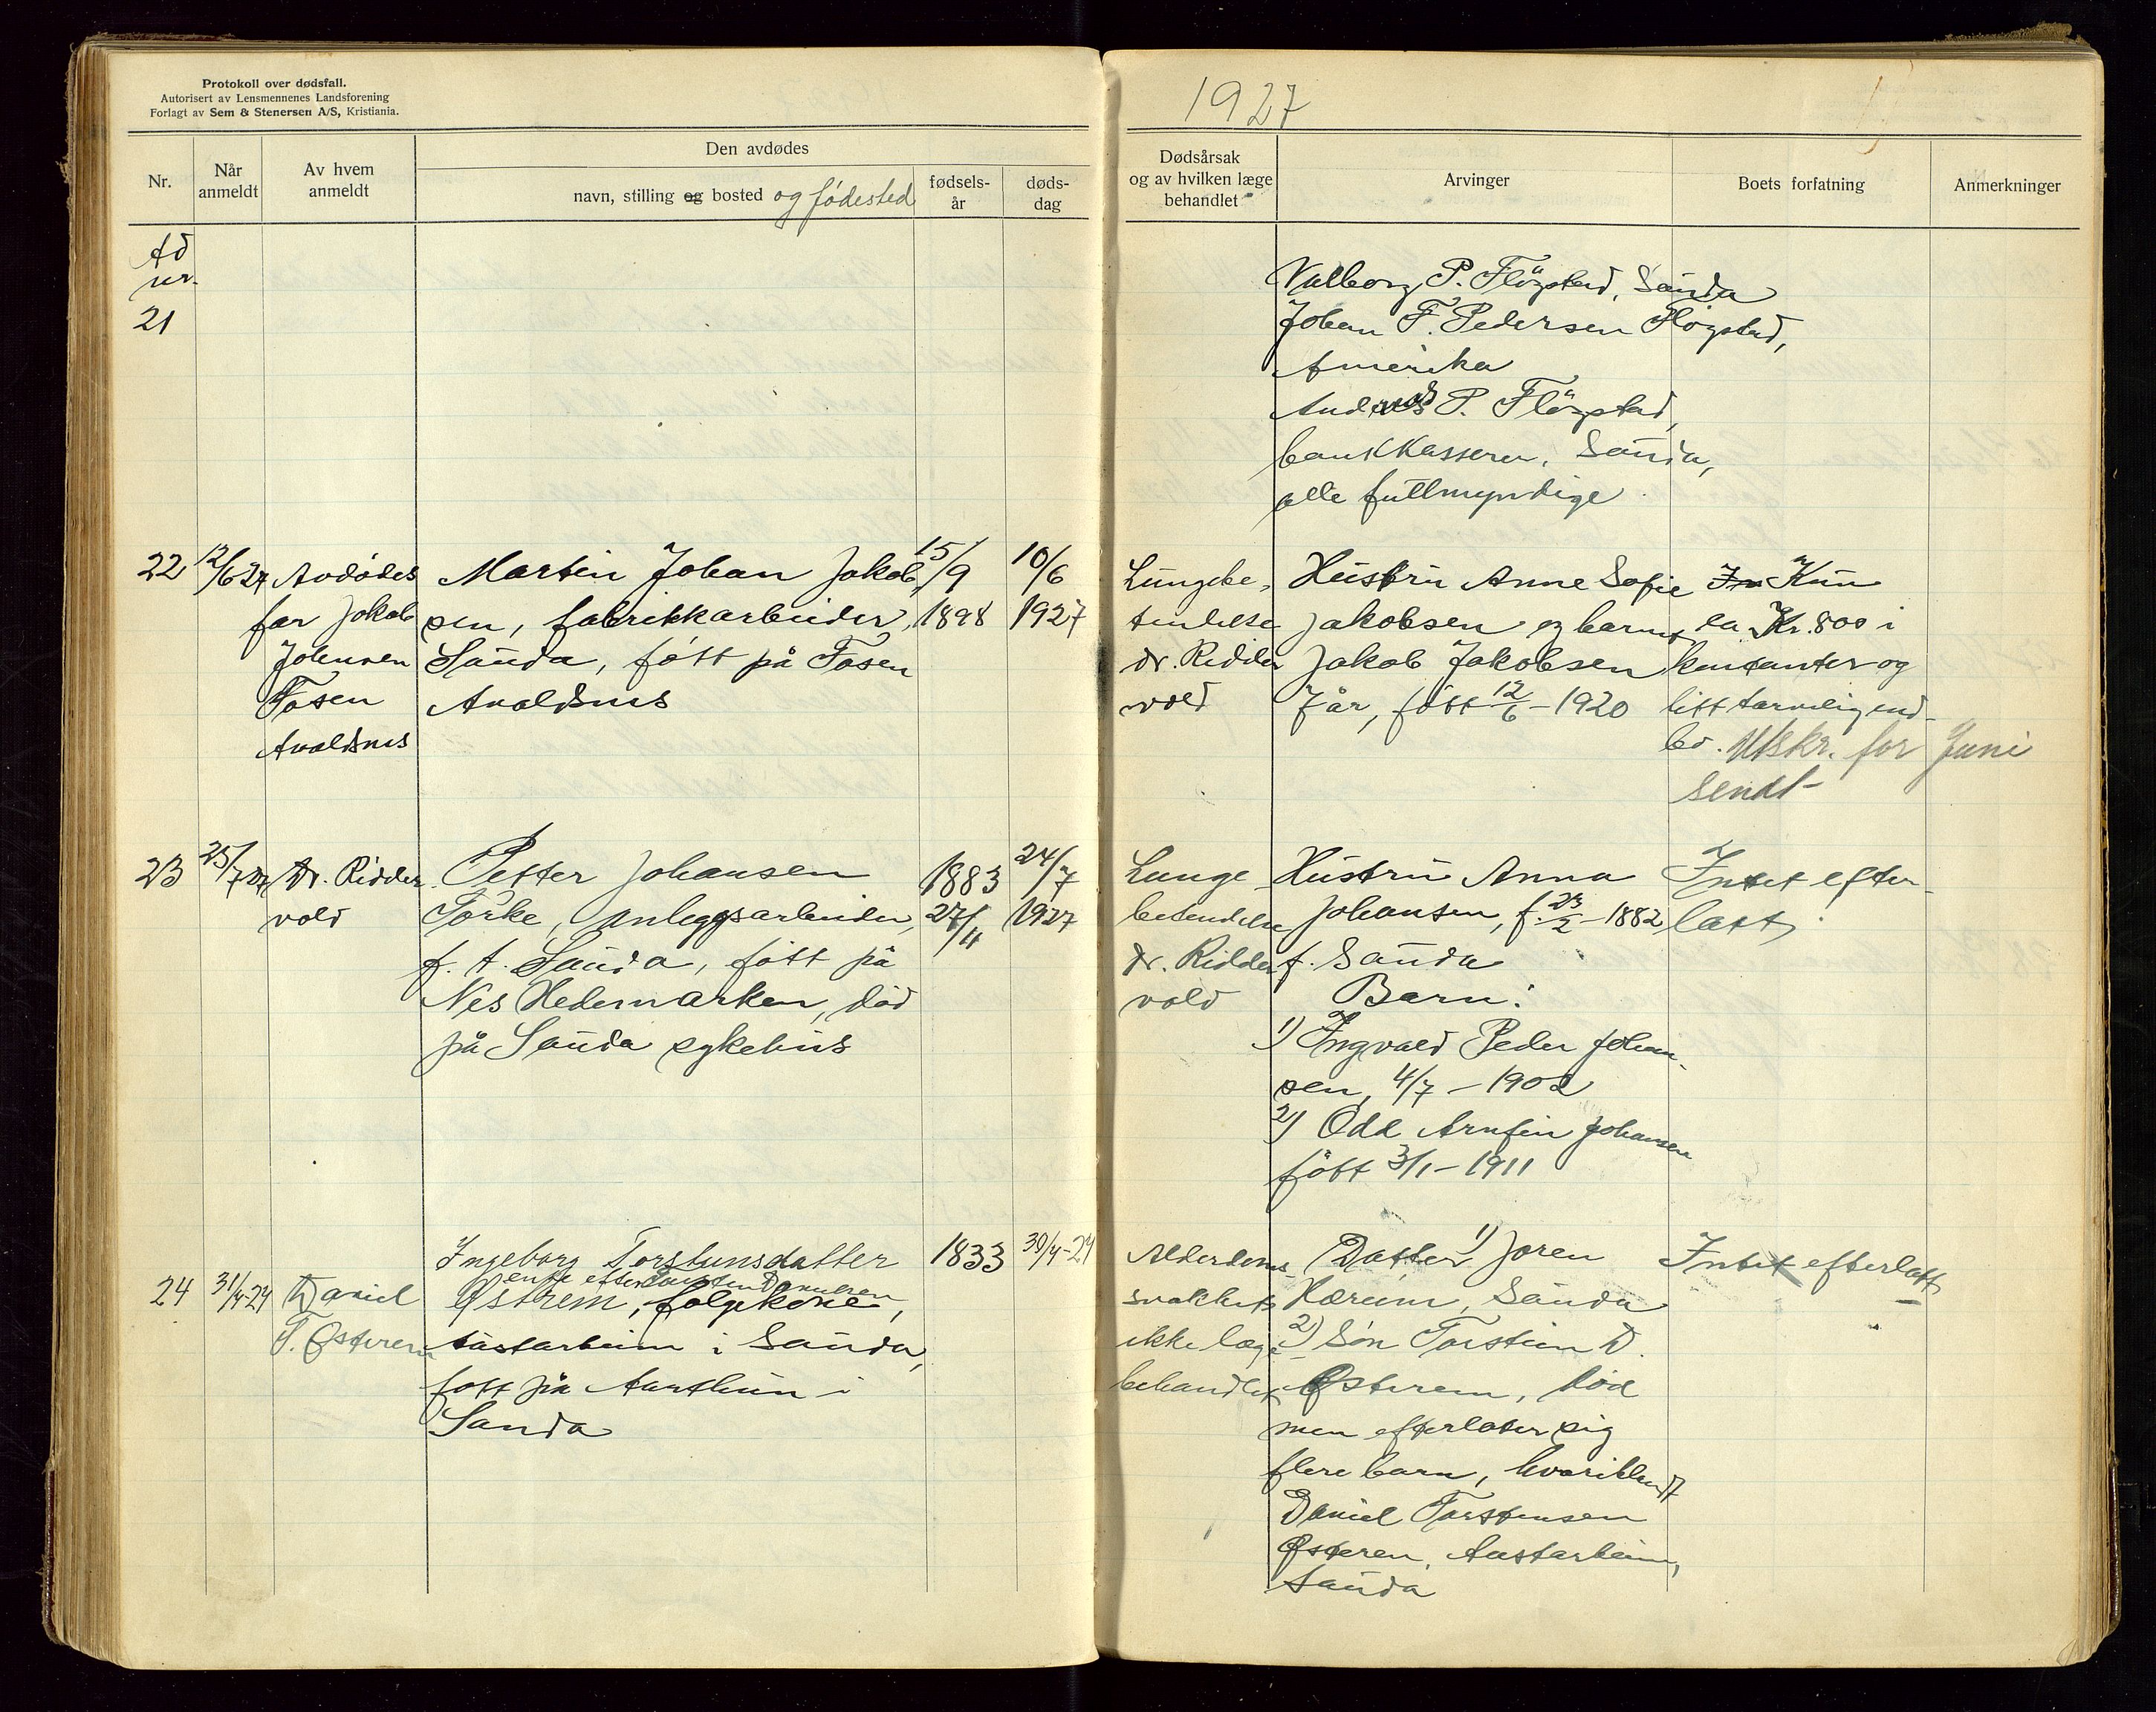 Protokoll over dødsfall.
Autorisert av Lensmennenes Landsforening
Forlagt av Sem & Stenersen A/S, Kristiania.
Nr.
Når
anmeldt
Av hvem
anmeldt
Den avdødes
navn, stilling og bosted og fødested
fødsels-
år
døds-
dag
1927
Dødsårsak
og av hvilken læge
behandlet
Arvinger
Boets forfatning
Anmerkninger
Ad
nr.
21
Valborg P. Fløgstad, Sauda
Johan F. Pedersen Fløgstad,
Amerika
P. Fløgstad,
bankkasserer, Sauda,
alle fullmyndige
22
12/6 27
Avdødes
far Jakob
Johnsen
Fosen
Avaldsnes
Martin Johan Jakob
sen, fabrikkarbeider,
Sauda, fött på Fosen
Avaldsnes
15/9
1898
10/6
1927
Lungebe-
tendelse
dr. Ridder
vold
Hustru Anne Sofie
Jakobsen og barnet
Jakob Jakobsen
7 år, fött 12/6 - 1920
Kun
ca Kr. 800 i
kontanter og
litt tarvelig ind-
bo. Utskr. for Juni
sendt
23
25/7 27
Dr. Ridder
vold
Petter Johansen
Torke, anleggsarbeider,
f. t. Sauda, fött på
Nes Hedemarken, död
på Sauda sykehus
1883
27/11
24/7
1927
Lunge
betendelse
dr. Ridder
vold
Hustru Anna
Johansen, f. 23/2 - 1882
f. Sauda
Barn:
1) Ingvald Peder Johan-
sen, 4/7 - 1902
2) Odd Arnfin Johansen
fött 3/1 - 1911
Intet efter-
latt
24
Daniel
T. Østrem
Ingeborg Torsteinsdatter
enke efter Danulsen
Østrem, folgekone,
i Sauda,
fött på i
Sauda
1833
Alderdoms-
svakhet
ikke læge
behandlet
Datter 1) Joren
Hærum, Sauda
2) Søn Torstein D.
Østrem, död
men efterlater sig
flere barn, hvoriblandt
Daniel Torstensen
Østrem,
Sauda
Intet efterlatt